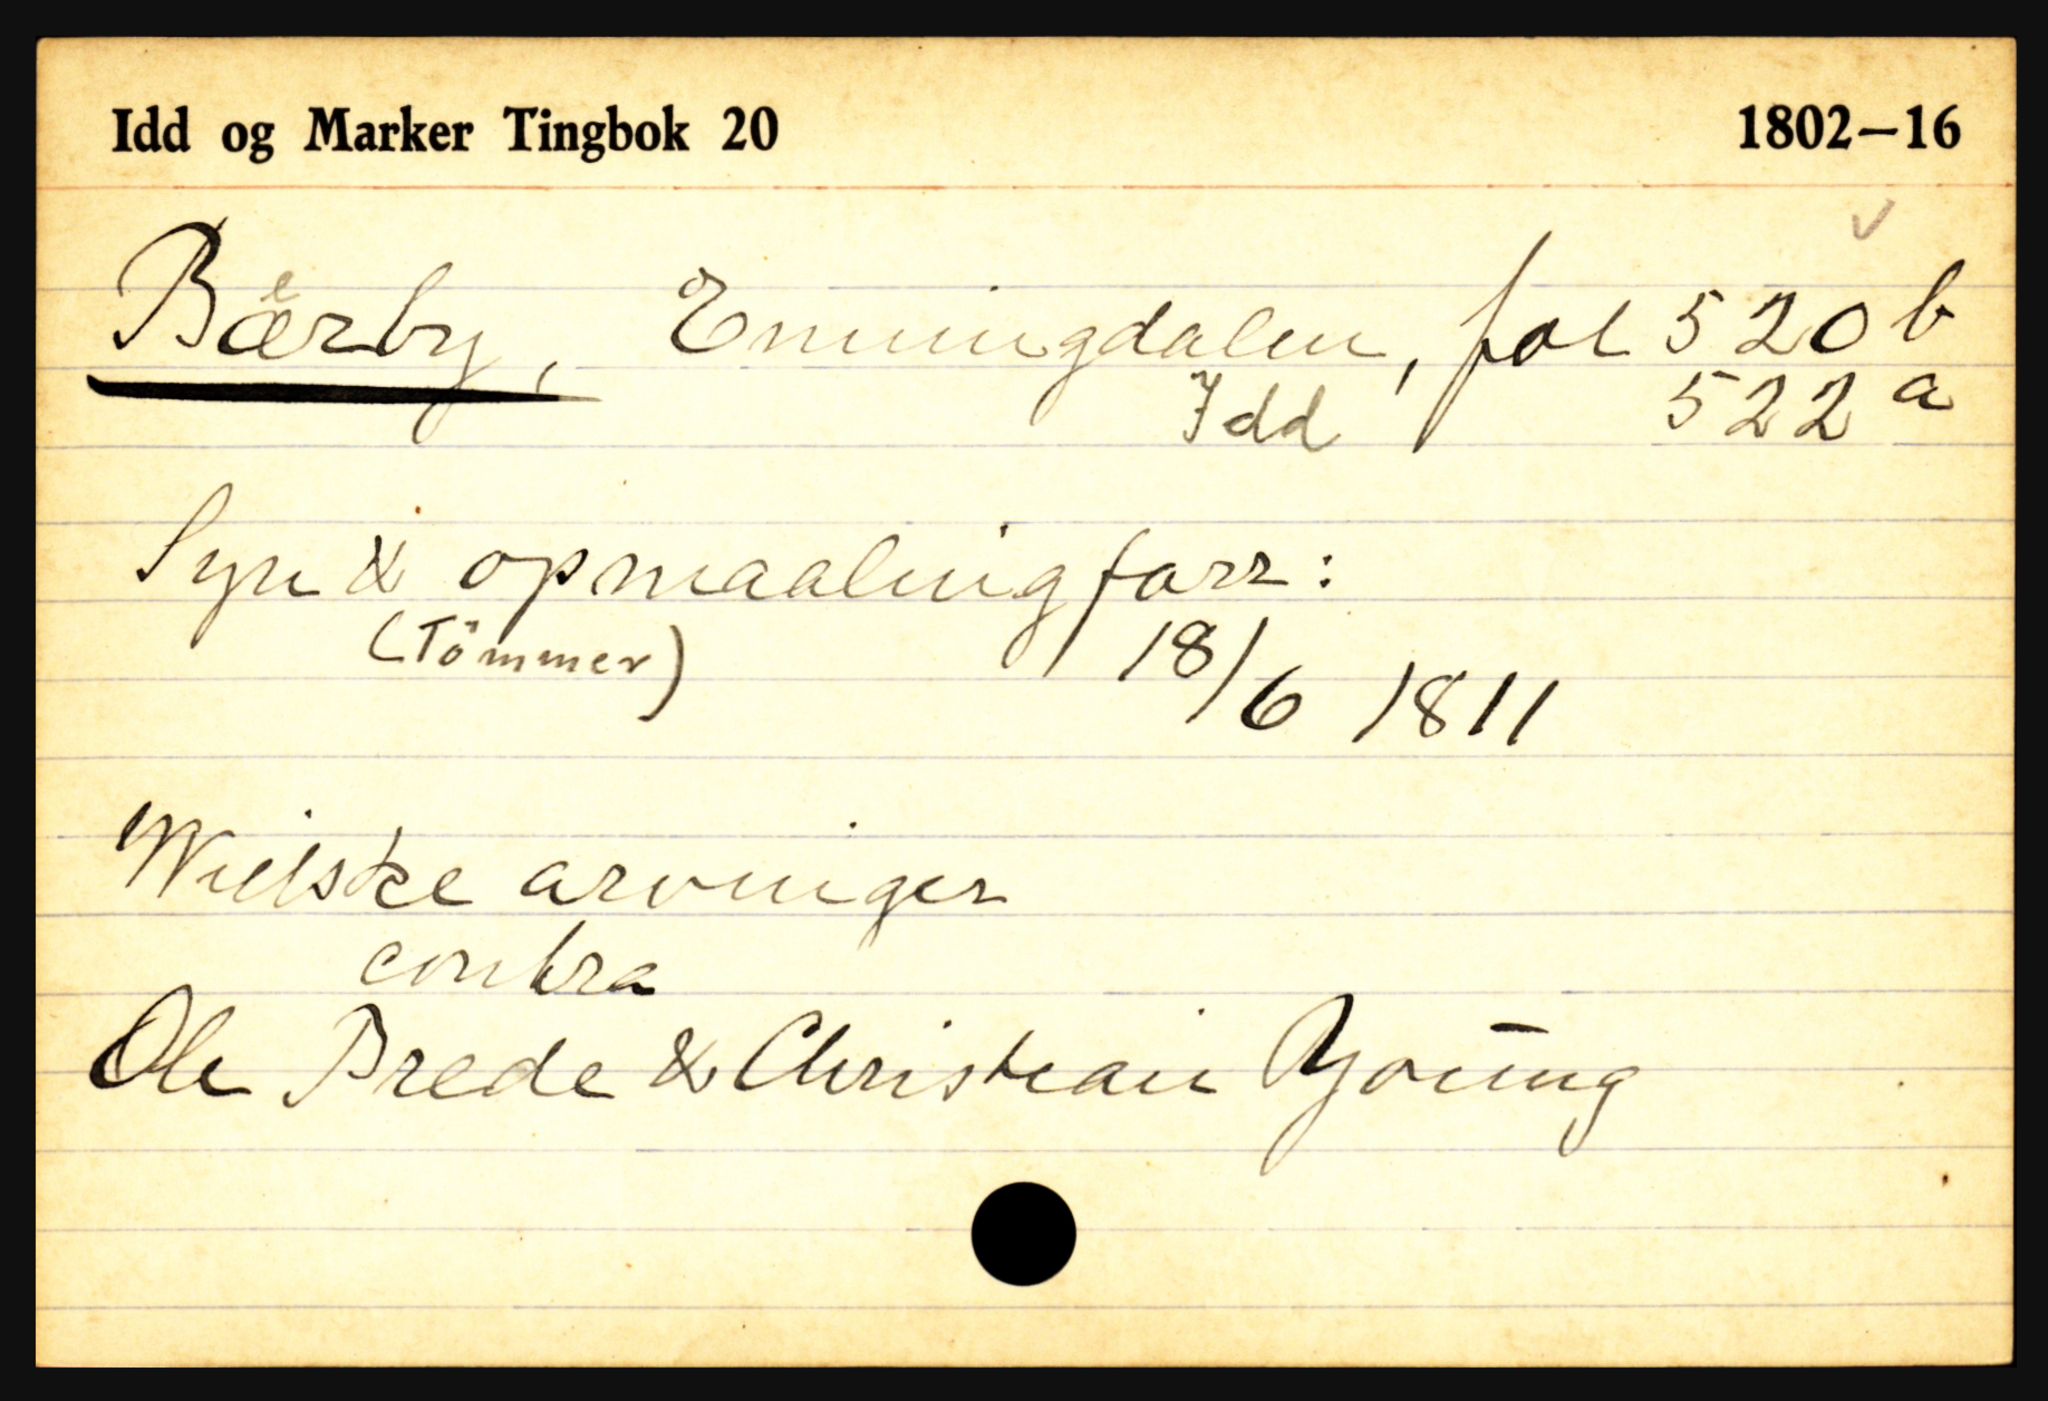 Idd og Marker Tingbok 20 1802–16
Bærby, Enningdalen, fol 520 b
Idd 522 a
Syn & opmaaling forr:
(Tömmer) 18/6 1811
Wielske arvinger
contra
Ole Brede & Christian Young